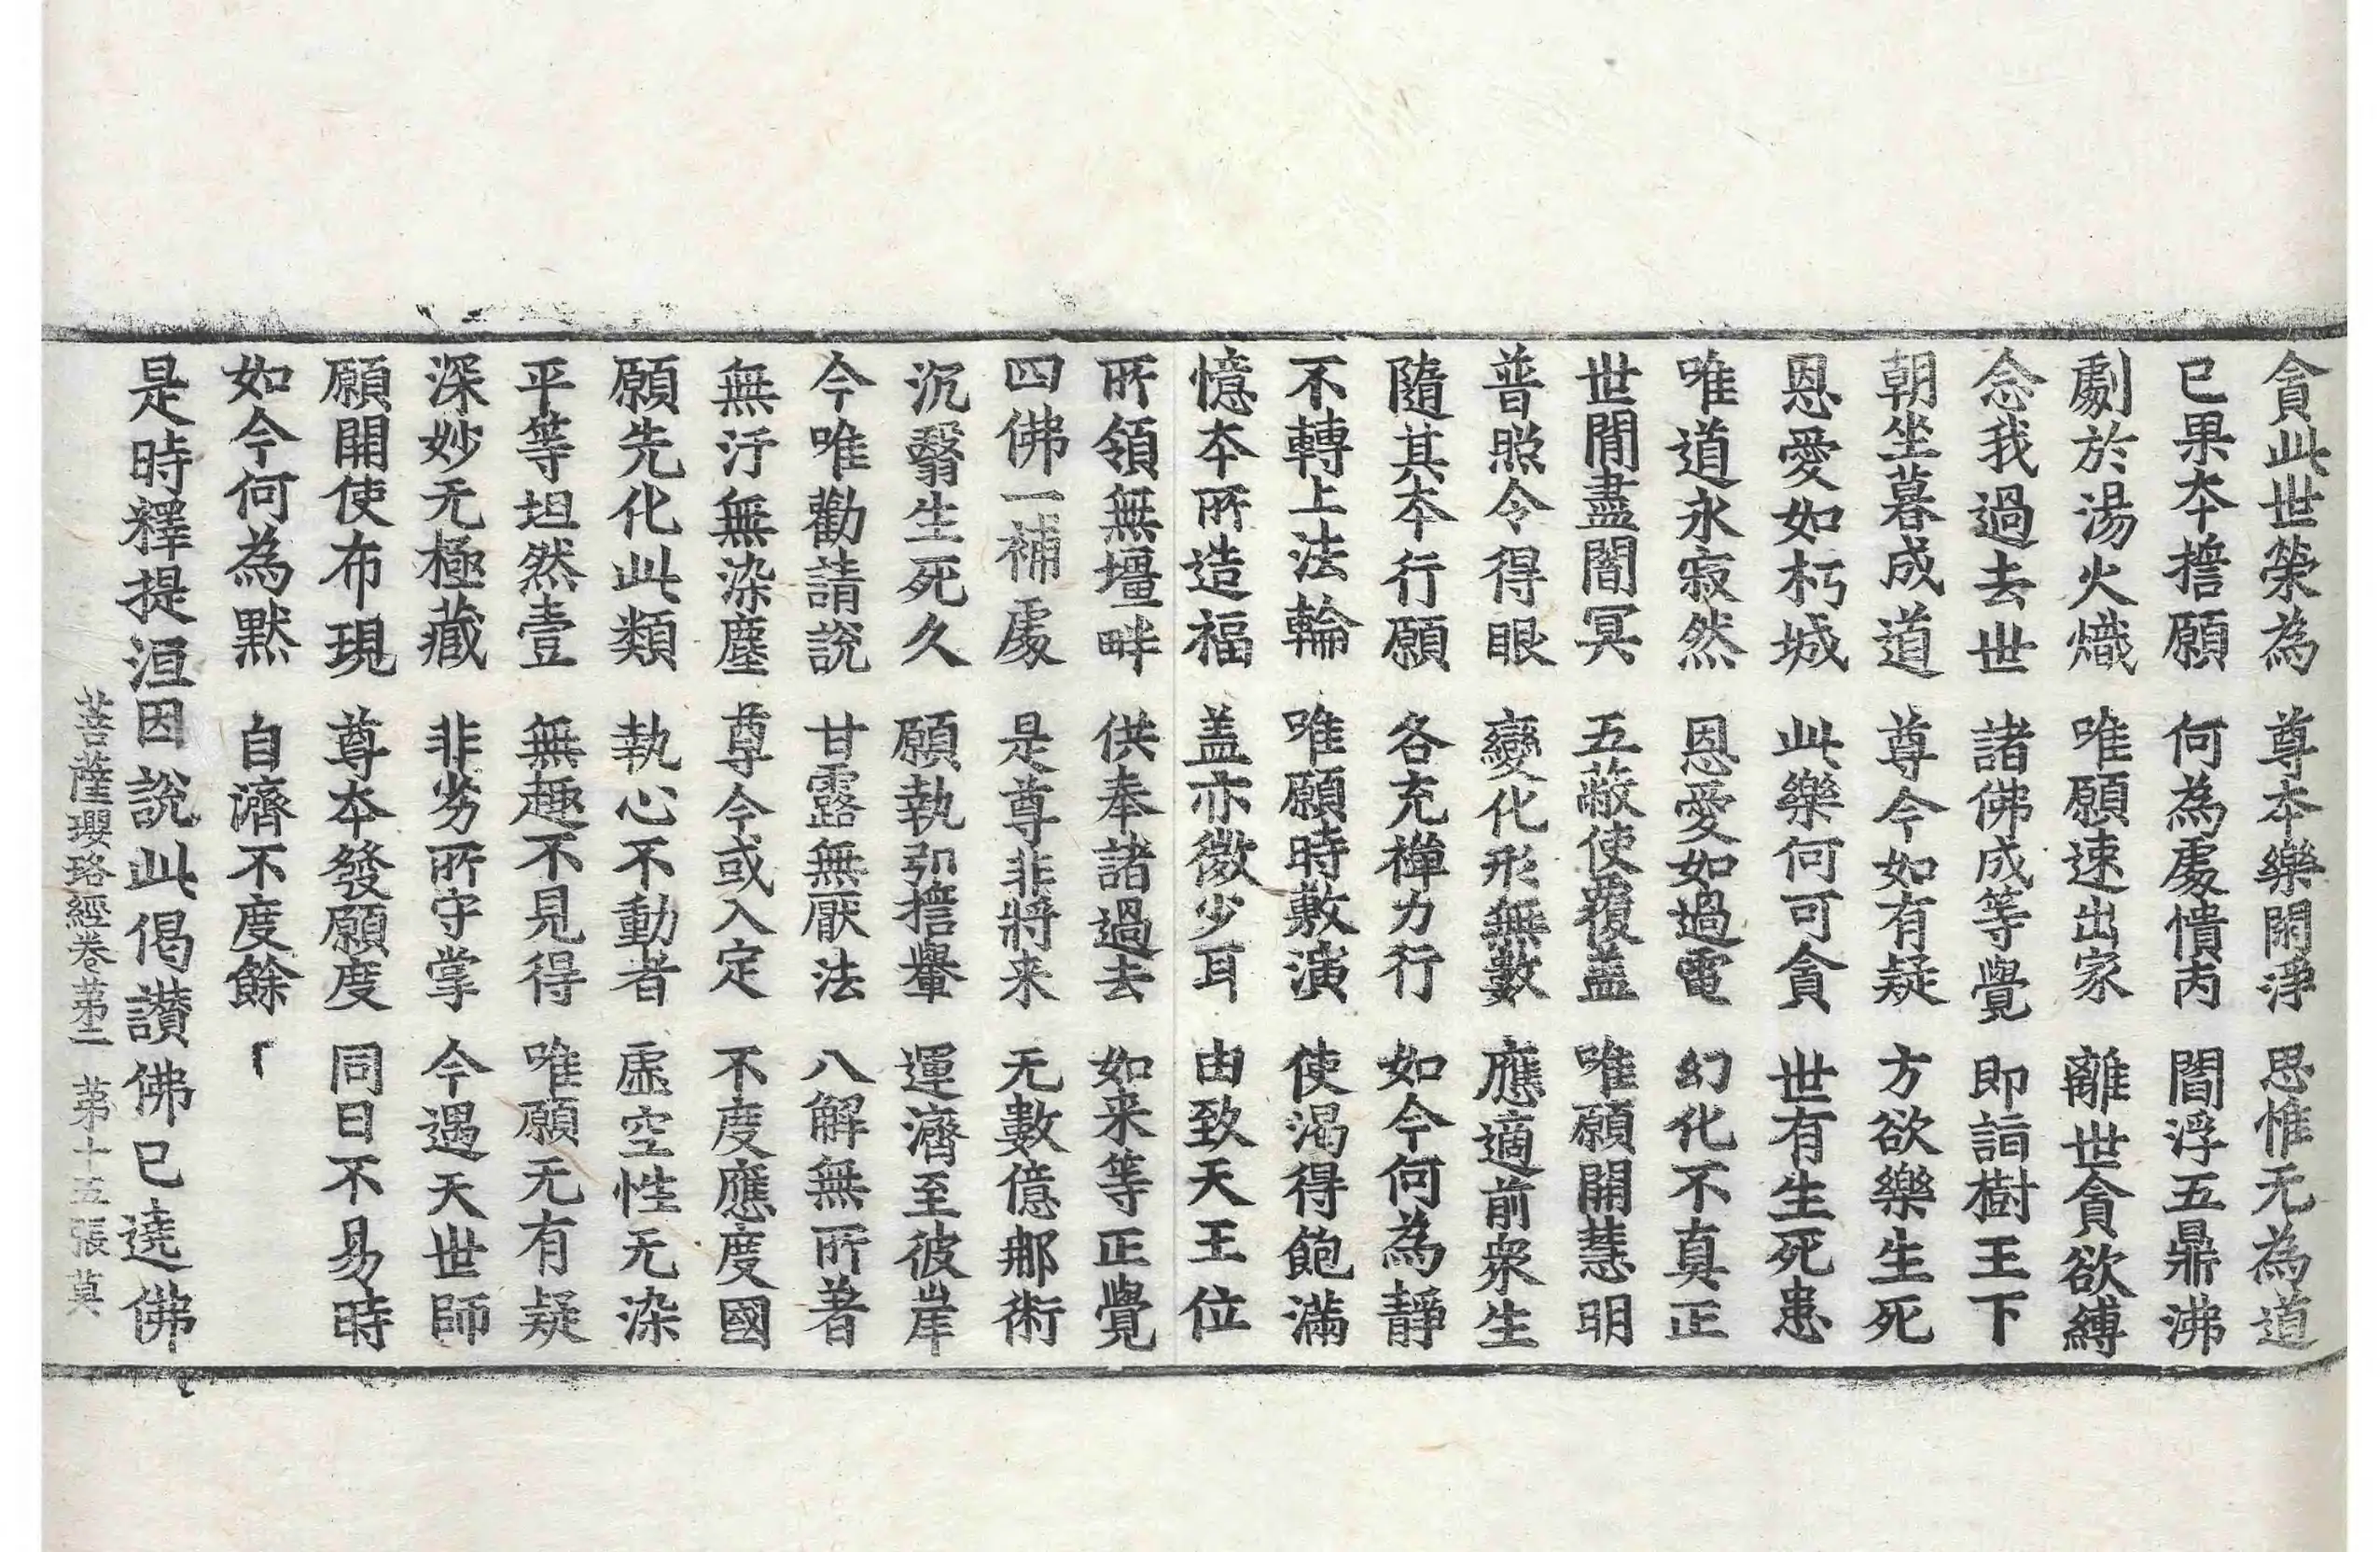 貪此世榮為　尊本樂閑淨　思惟无為道
已果本擔願　何為處憒丙　閻浮五鼎沸
劇於湯火熾　唯願速出家　離世貪欲縛
念我過去世　諸佛成等覺　即詣樹王下
朝坐暮成道　尊今如有疑　方欲樂生死
恩愛如朽城　此樂何可貪　世有生死患
唯道永寂然　恩愛如過電　幻化不真正
世間盡闇冥　五蔽使覆盖　唯願開慧明
普照令得眼　變化形無數　應適前衆生
隨其本行願　各充禪力行　如今何為靜
不轉上法輪　唯願時敷演　使渴得飽滿
憶本所造福　盖亦微少耳　由致天王位
所領無壃畔　供奉諸過去　如来等正覺
四佛一補處　是尊非將来　无數億那術
沉翳生死久　願執弘擔轝　運濟至彼岸
今唯勸請說　甘露無厭法　八解無所著
無汙無染塵　尊今或入定　不度應度國
願先化此類　執心不動者　虛空性无染
平等坦然壹　無趣不見得　唯願无有疑
深妙无極藏　非劣所守掌　今遇天世師
願開使布現　尊本發願度　同日不易時
如今何為默　自濟不度餘
是時釋提洹因說此偈讃佛已遶佛
菩薩瓔珞經卷苐二　苐十五張莫